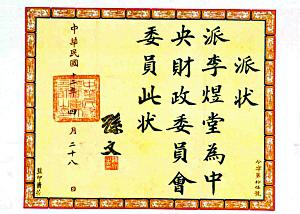 派状
派李煜堂為中
央財政委員會
委員此状
孫文
中華民國十二年四月二十八日